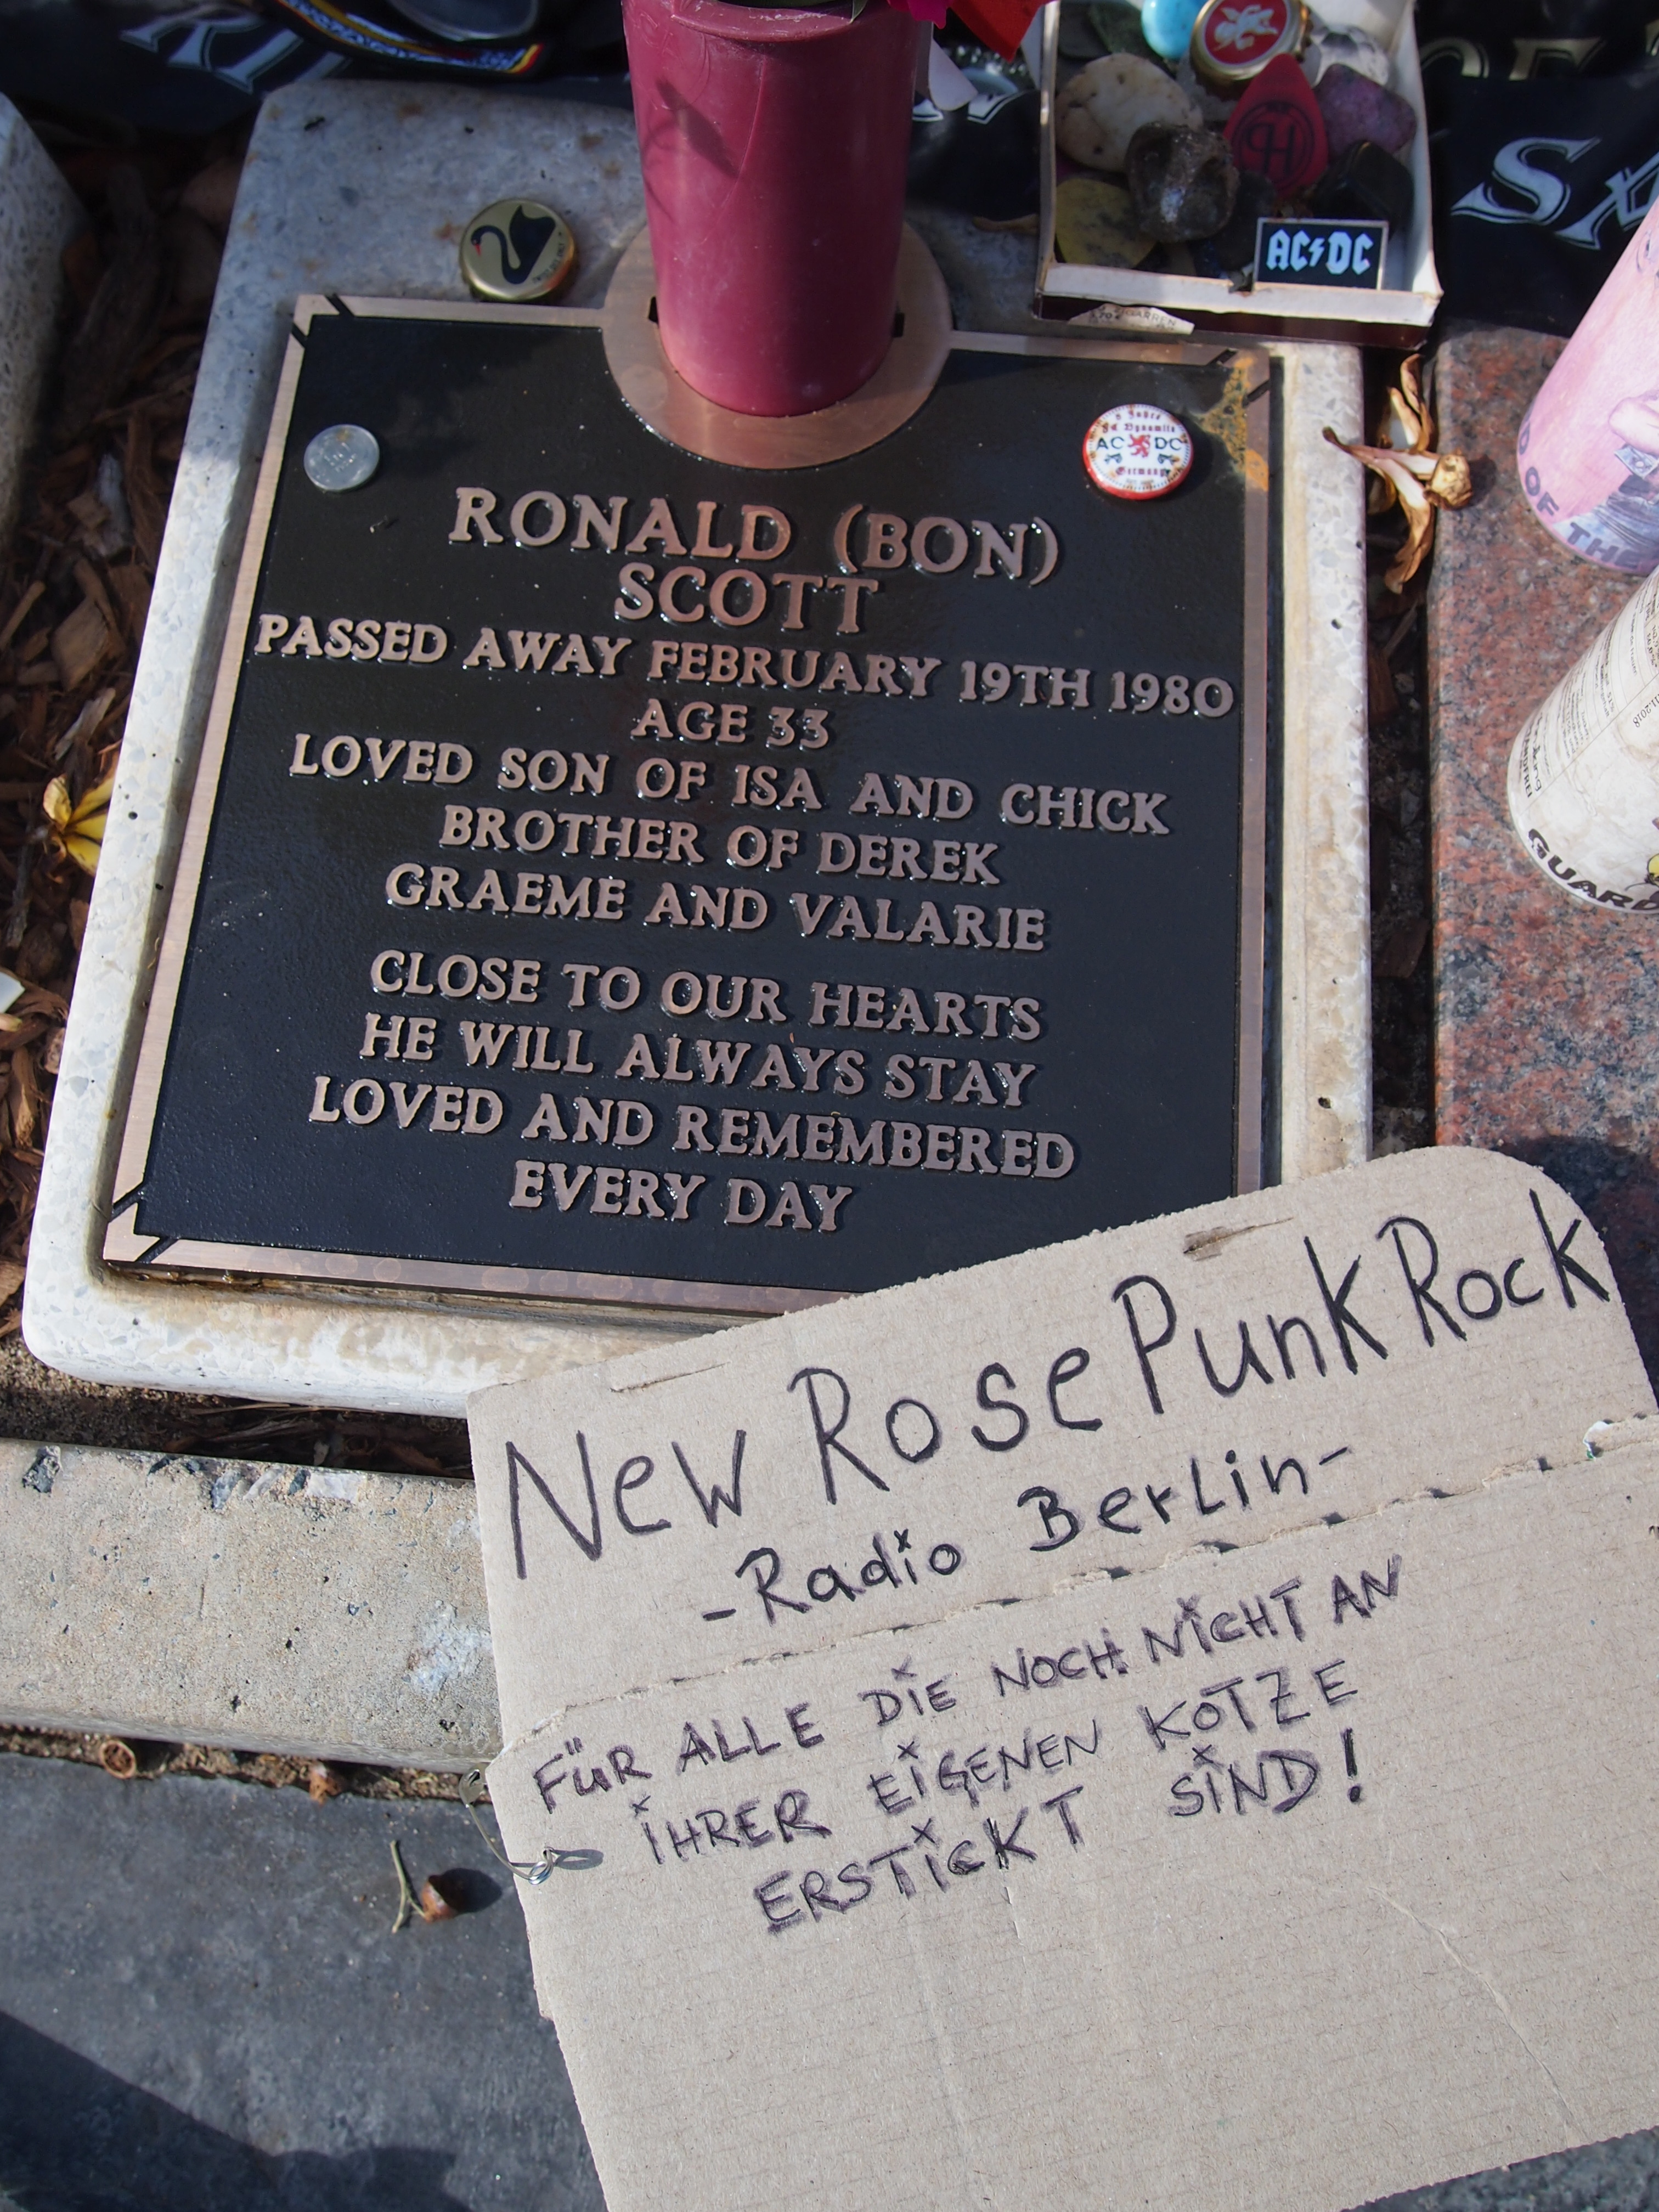 AC DC
AC DC
Germany
RONALD (BON)
SCOTT
PASSED AWAY FEBRUARY 19TH 1980
AGE 33
LOVED SON OF ISA AND CHICK
BROTHER OF DEREK
GRAEME AND VALARIE
CLOSE TO OUR HEARTS
HE WILL ALWAYS STAY
LOVED AND REMEMBERED
EVERY DAY
OF THE
New Rose Punk Rock
-Radio Berlin-
FÜR ALLE DIE NOCH NICHT AN
IHRER EIGENEN KOTZE
ERSTICKT SIND!